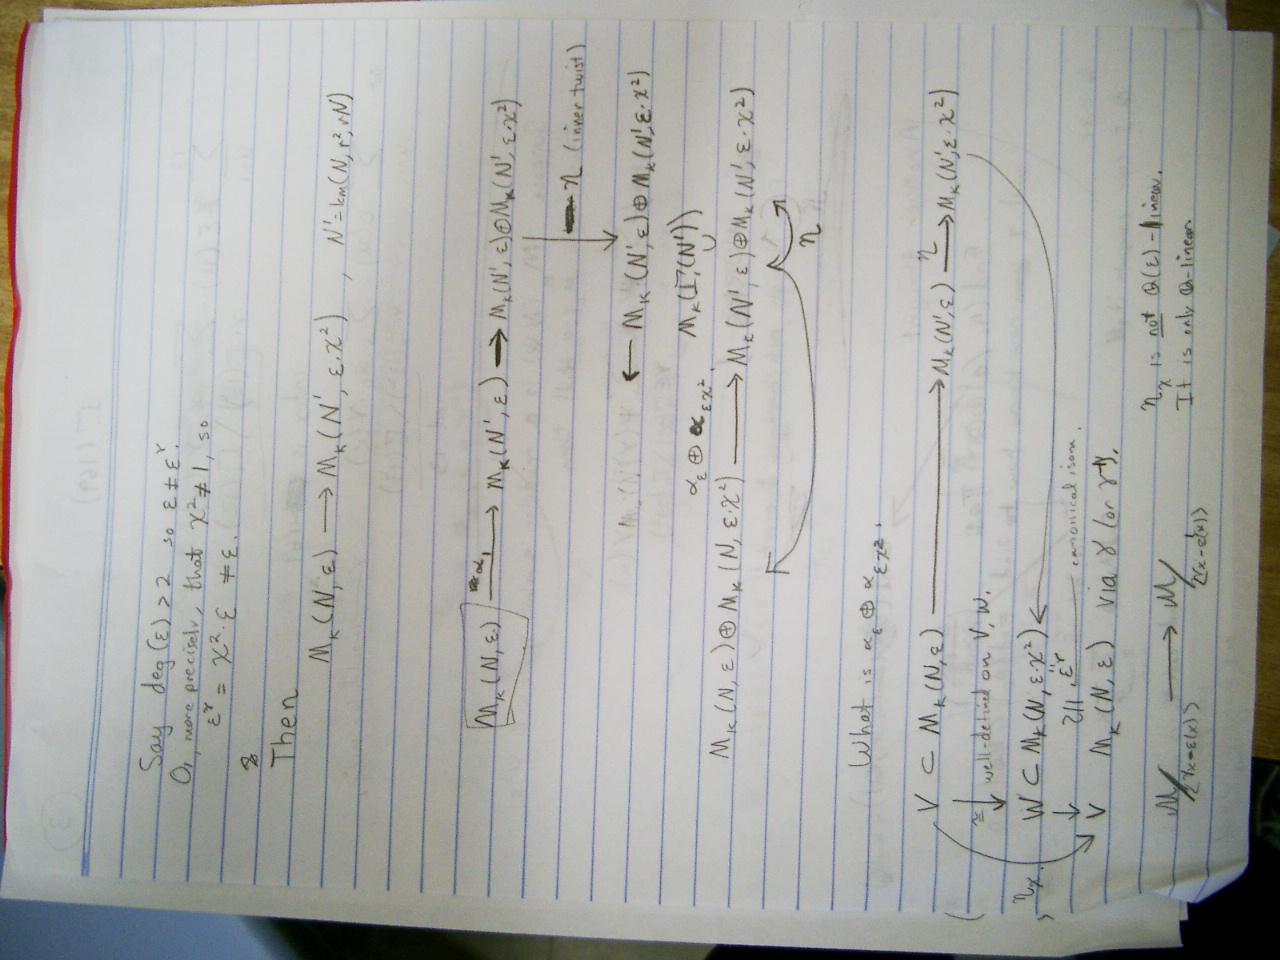 3
Say deg(ε) > 2 so ε ≠ ε^γ.
Or, more precisely, that χ² ≠ 1, so
ε^γ = χ²·ε ≠ ε.
Then
M_k(N, ε) ⟶ M_k(N', ε·χ²) , N' = lcm(N, r², rN)
M_k(N, ε) —α₁→ M_k(N', ε) ⟶ M_k(N', ε)⊕M_k(N', ε·χ²)
↓ η (inner twist)
← M_k(N', ε)⊕M_k(N', ε·χ²)
α_ε ⊕ α_{εχ²}. M_k(Γ₁(N'))
M_k(N, ε)⊕M_k(N, ε·χ²) ⟶ M_k(N', ε)⊕M_k(N', ε·χ²)
η
What is α_ε ⊕ α_{εχ²}.
V ⊂ M_k(N, ε) ⟶ M_k(N', ε) —η→ M_k(N', ε·χ²)
≅ ↓ well-defined on V, W.
W ⊂ M_k(N, ε·χ²)
↓ ≀∥ ε^γ — canonical isom.
η_χ V M_k(N, ε) via γ (or γ⁻¹).
M/[γx=ε(x)] ⟶ M/[γx-ε(x)] η_χ is not Q(ε)-linear.
It is only Q-linear.